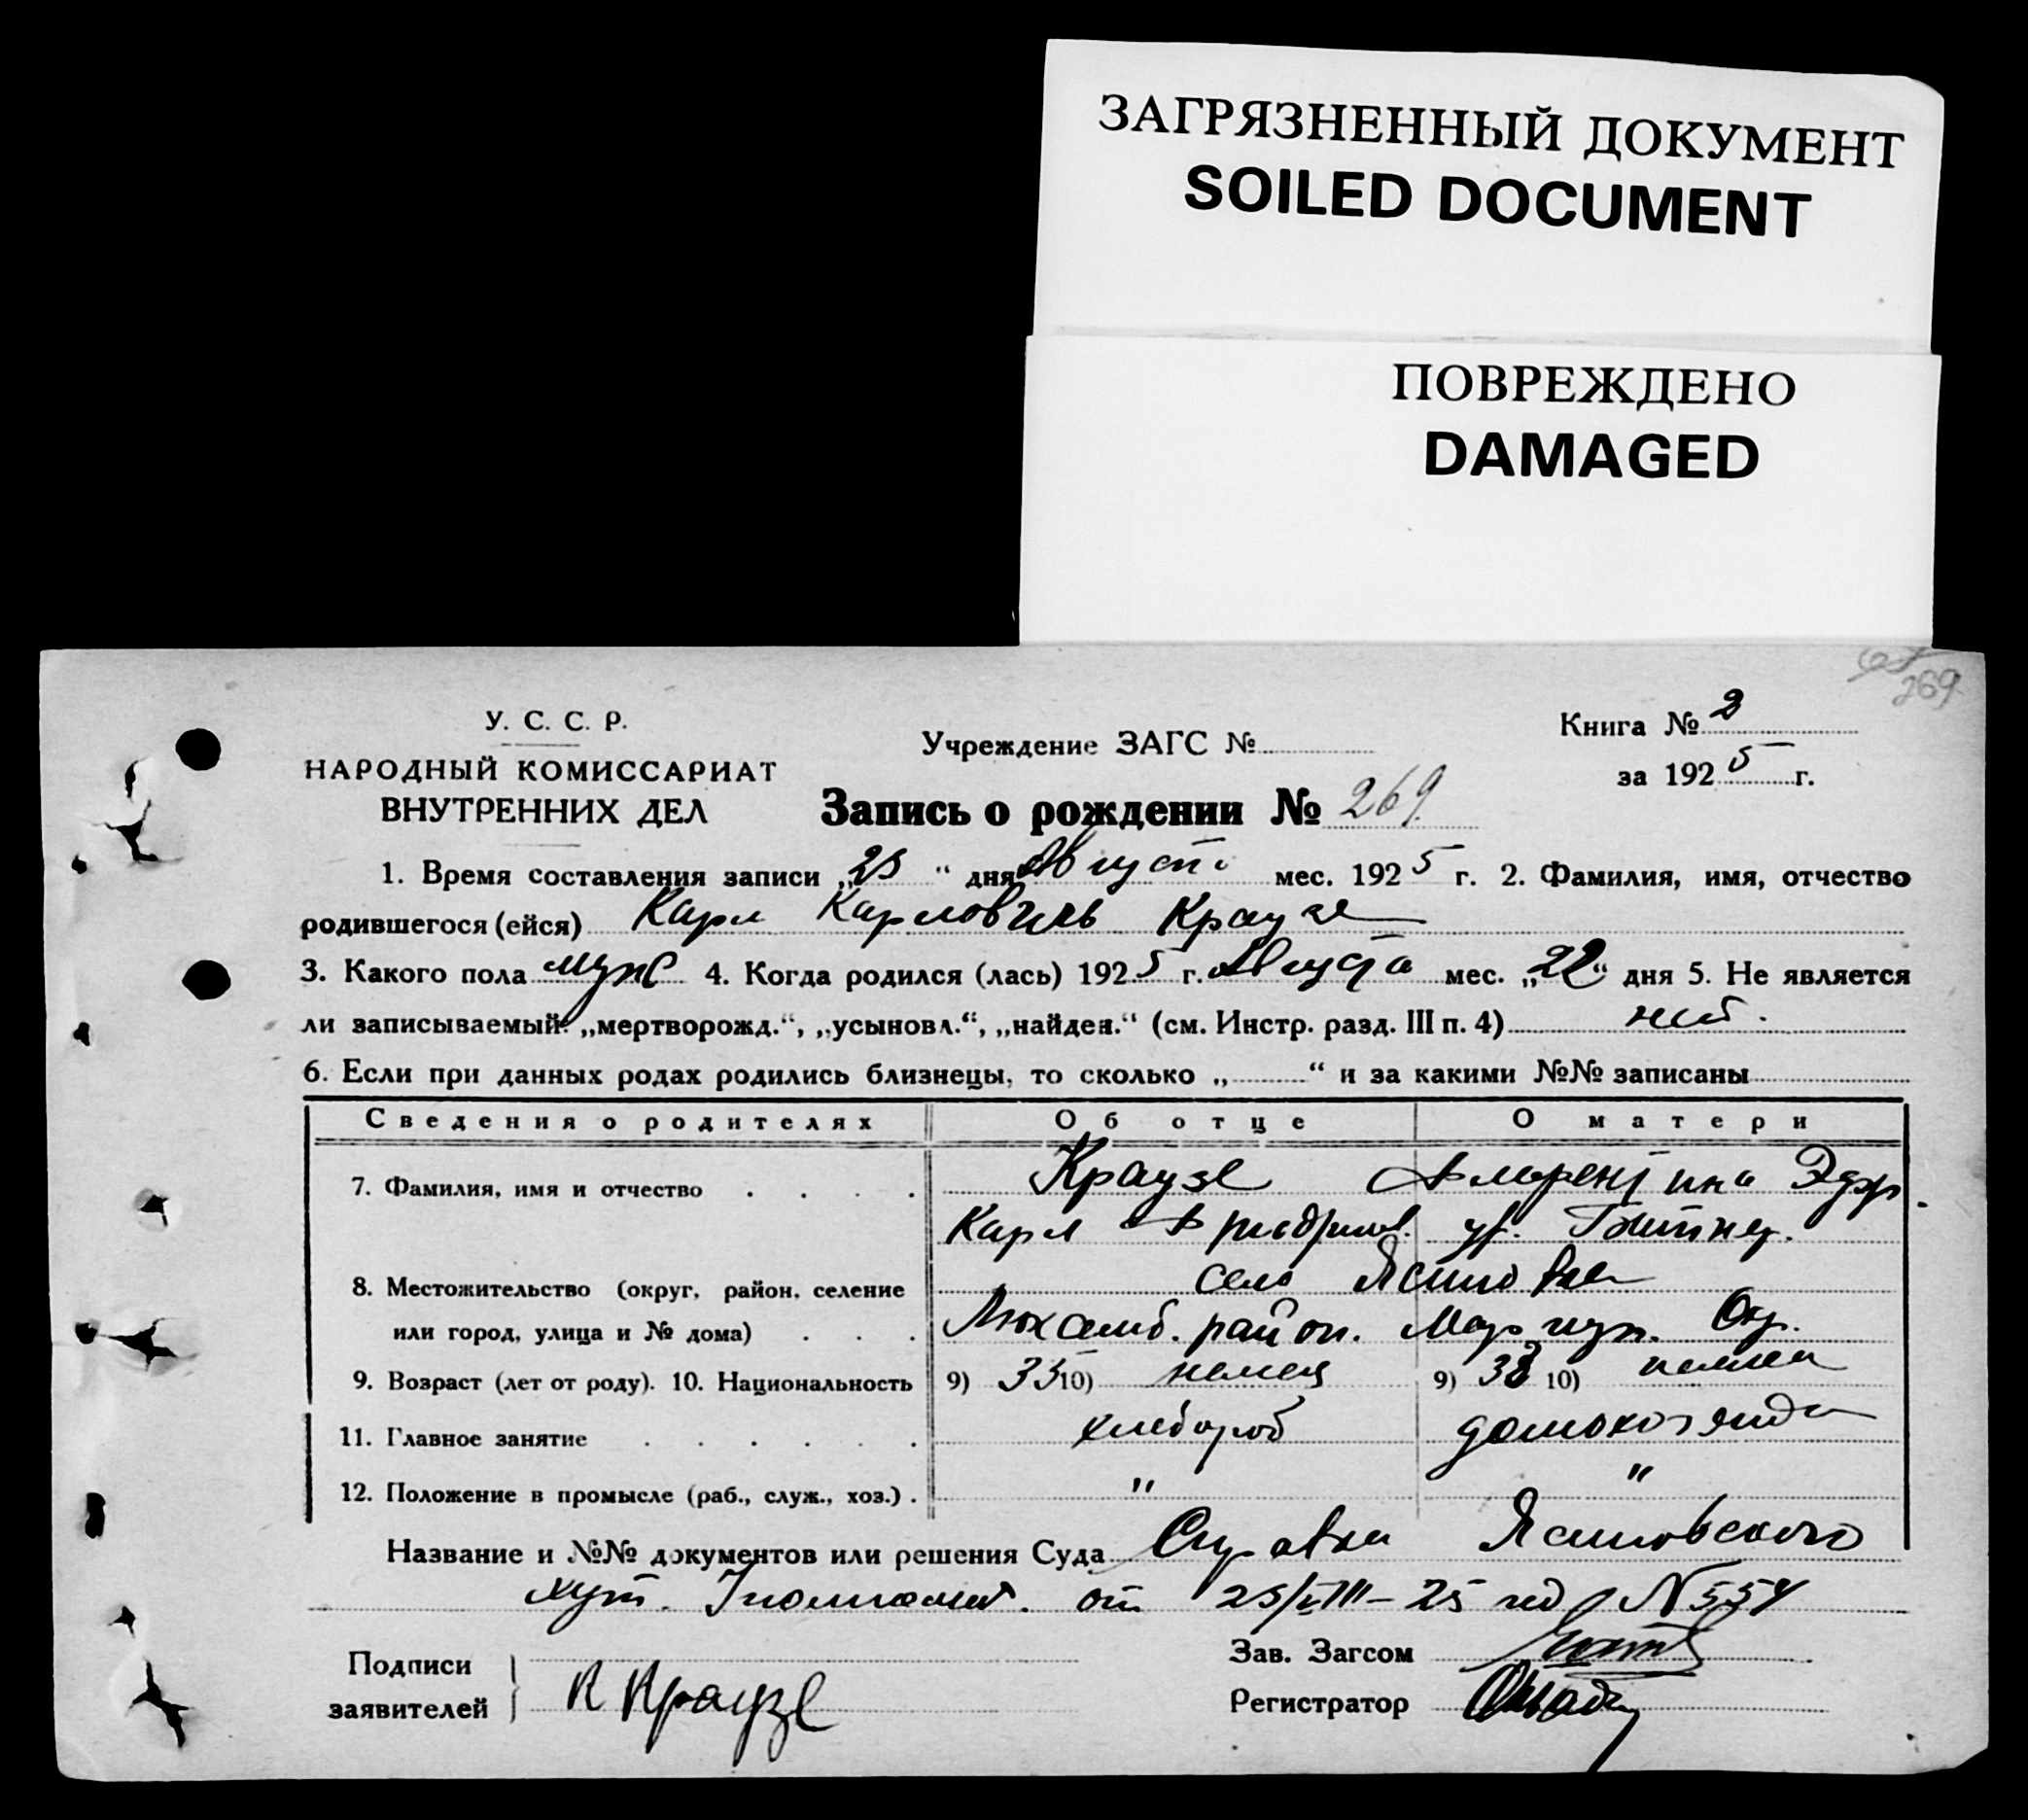 ЗАГРЯЗНЕННЫЙ ДОКУМЕНТ
SOILED DOCUMENT
ПОВРЕЖДЕНО
DAMAGED
269
У. С. С. Р.
НАРОДНЫЙ КОМИССАРИАТ
ВНУТРЕННИХ ДЕЛ
Учреждение ЗАГС №
Книга № 2
за 1925 г.
Запись о рождении № 269
1. Время составления записи „25“ дня Августа мес. 1925 г. 2. Фамилия, имя, отчество
родившегося (ейся) Карл Карлович Краузе
3. Какого пола муж 4. Когда родился (лась) 1925 г. Августа мес. „22“ дня 5. Не является
ли записываемый: „мертворожд.“, „усыновл.“, „найден.“ (см. Инстр. разд. III п. 4) нет.
6. Если при данных родах родились близнецы, то сколько „ “ и за какими №№ записаны
Сведения о родителях Об отце О матери
7. Фамилия, имя и отчество Краузе Флорентина Эдф.
Карл Фридрихов. ур. Битнер.
8. Местожительство (округ, район, селение село Ясиновка
или город, улица и № дома) Люксемб. район. Мариуп. Окр.
9. Возраст (лет от роду). 10. Национальность 9) 35 10) немец 9) 38 10) немка
11. Главное занятие хлебороб домохозяйка
12. Положение в промысле (раб., служ., хоз.) . " "
Название и №№ документов или решения Суда Справка Ясиновского
хут. от 25/VIII–25 год N 554
Подписи
заявителей К Краузе
Зав. Загсом
Регистратор